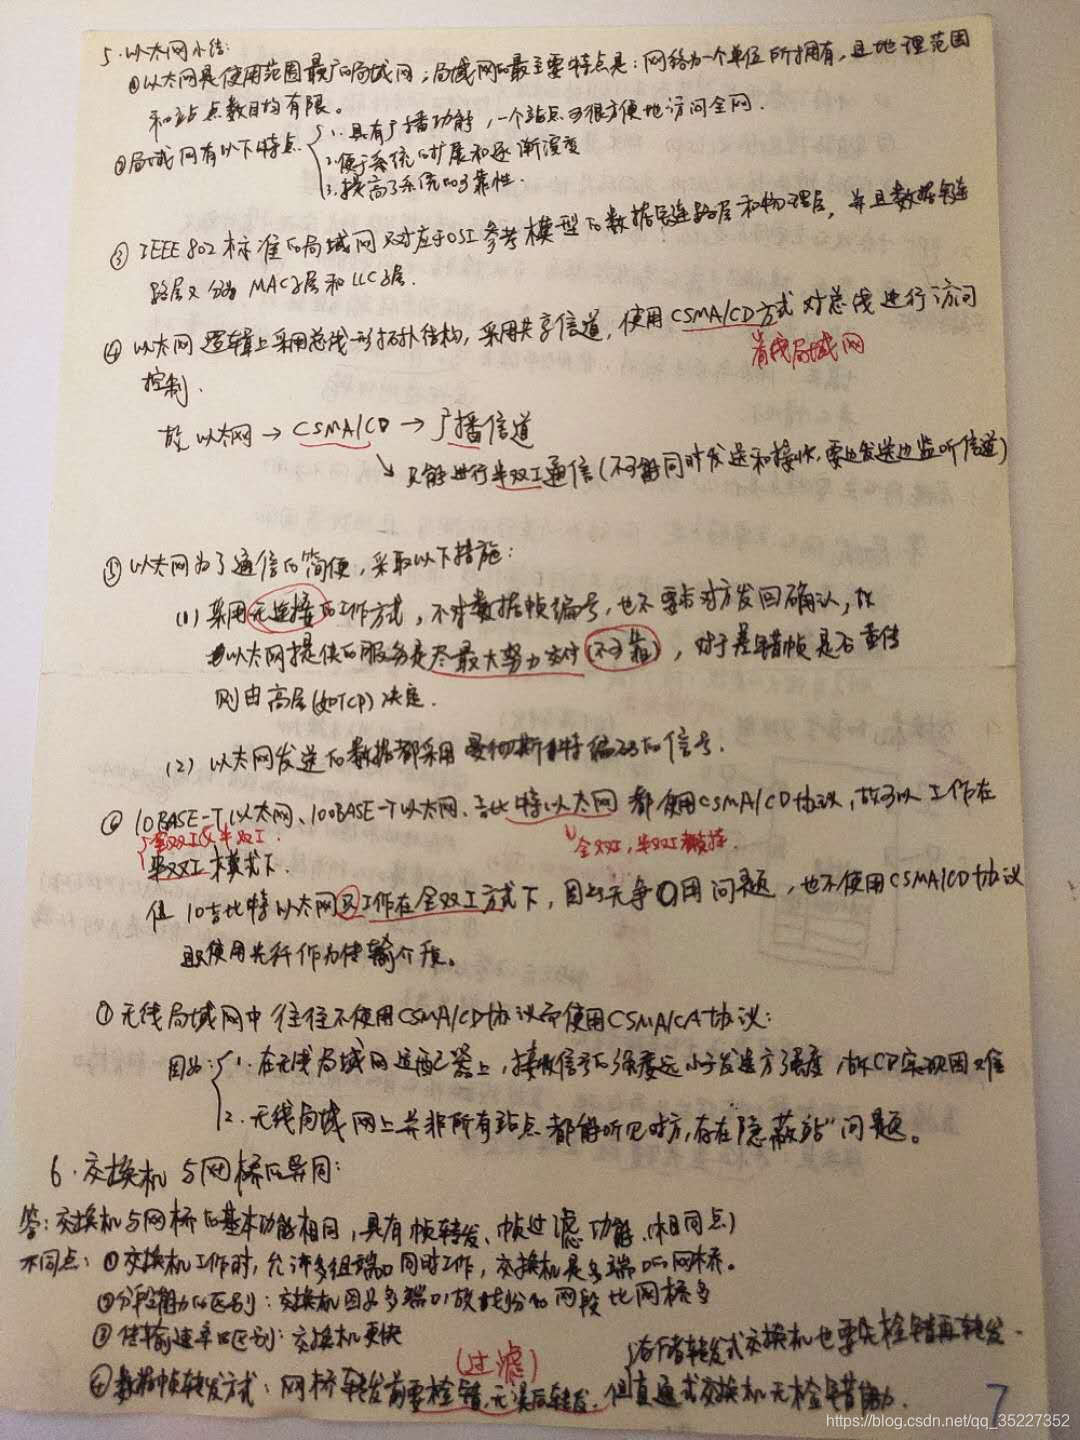 5.以太网小结:
①以太网是使用范围最广的局域网,局域网的最主要特点是:网络为一个单位所拥有,且地理范围
和站点数目均有限。
②局域网有以下特点
1.具有广播功能,一个站点可很方便地访问全网.
2.便于系统的扩展和逐渐演变
3.提高了系统的可靠性.
③ IEEE802标准的局域网只对应于OSI参考模型的数据链路层和物理层,并且数据链
路层又分为 MAC子层和LLC子层.
④ 以太网逻辑上采用总线形拓扑结构,采用共享信道,使用CSMA/CD方式对总线进行访问
有线局域网
控制.
故以太网→CSMA/CD→广播信道
↘只能进行半双工通信(不可能同时发送和接收,要边发送边监听信道)
⑤以太网为了通信的简便,采取以下措施:
(1)采用无连接的工作方式,不对数据帧编号,也不要求对方发回确认,故
以太网提供的服务是尽最大努力交付(不可靠),对于差错帧是否重传
则由高层(如TCP)决定.
(2) 以太网发送的数据都采用曼彻斯特编码的信号.
⑥ 10BASE-T以太网、100BASE-T以太网、吉比特以太网 都使用CSMA/CD协议,故可以工作在
全双工及半双工.
全双工,半双工都支持.
半双工模式下.
但10吉比特以太网只工作在全双工方式下,因此无争用问题,也不使用CSMA/CD协议
且只使用光纤作为传输介质。
⑦无线局域网中往往不使用CSMA/CD协议而使用CSMA/CA协议:
因为:1.在无线局域网适配器上,接收信号的强度远小于发送方强度,做CD实现困难
2.无线局域网上并非所有站点都能听见对方,存在"隐蔽站"问题。
6.交换机与网桥的异同:
答:交换机与网桥的基本功能相同,具有帧转发、帧过滤功能.(相同点)
不同点:①交换机工作时,允许多组端口同时工作,交换机是多端口的网桥。
②分段能力的区别:交换机因为多端口,故划分的网段比网桥多
③传输速率的区别:交换机更快
存储转发式交换机也要先检错再转发.
(过滤)
④数据帧转发方式:网桥转发前要检错,无误后转发,但直通式交换机无检错能力.
7
https://blog.csdn.net/qq_35227352